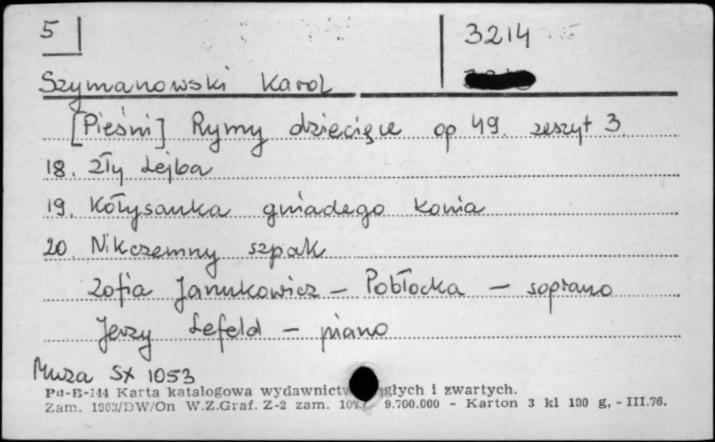 5
3214
Szymanowski Karol
[Pieśni] Rymy dziecięce op 49. zeszyt 3.
18. Zły Lejba
19. Kołysanka gniadego konia
20. Nikczemny szpak
Zofia Janukowicz – Pobłocka – soprano
Jerzy Lefeld – piano
Muza SX 1053
Pu-B-144 Karta katalogowa wydawnictw głych i zwartych.
Zam. 1963/DW/On W.Z.Graf. Z-2 zam. 9.700.000 - Karton 3 kl 180 g, - III.76.